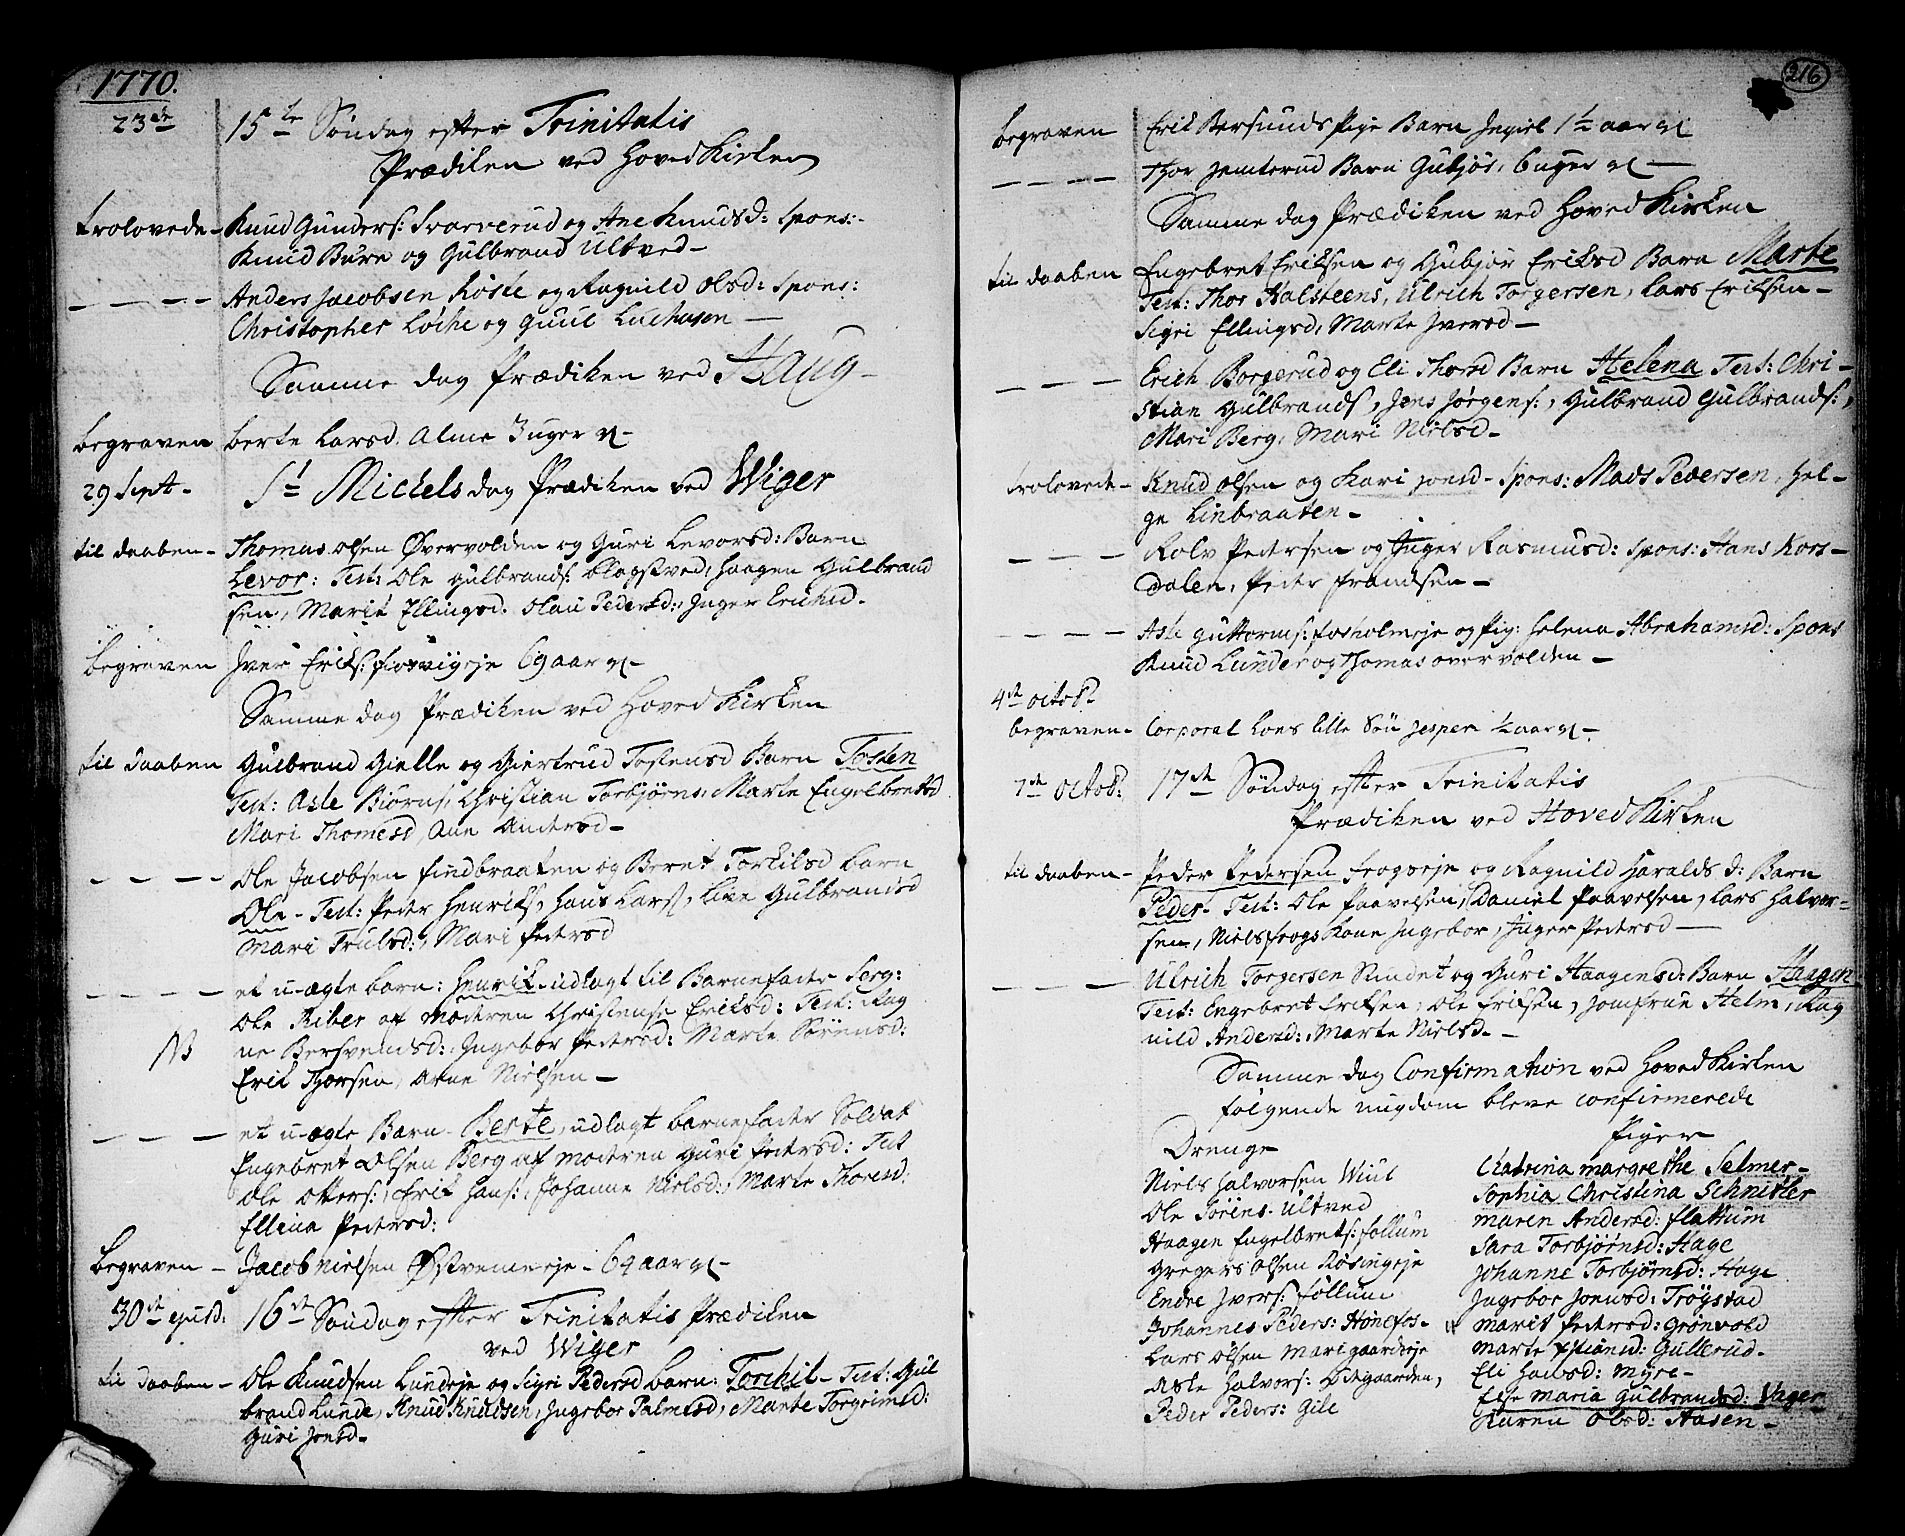 1770.
23de 15de Søndag efter Trinitatis
Prædiken ved Hoved Kirken
trolovede - Knud Gunders: Svarverud og Ane Knudsd: Spons:
Knud Bure og Gulbrand Ultved -
Anders Jacobsen Roste og Ragnild Olsd: Spons:
Christopher Løche og Guul
Samme dag Prædiken ved Haug -
begraven berte Larsd. Alme 3 uger gl -
29 Sept - St Michels dag Prædiken ved Wiger
til daaben - Thomas olsen Øvervolden og Guri Levorsd: Barn
Levor: Test: Ole gulbrands: Klogstved, haagen Gulbrand
sen, Marit Ellingsd. Olau Pedersd:, Inger
begraven Jver Eriks: 69 aar gl -
Samme dag Prædiken ved Hoved Kirken
til daaben Gulbrand Gielle og Giertrud Tostensd Barn Tosten
Test: Asle Biørns, Christian Torbjørns, Marte Engelbretsd
Mari Thomesd, Ane Andersd -
Ole Jacobsen findbraaten og Beret Torkilsd barn
Ole - Test: Peder Henriks, hans Lars, Live Gulbrandsd
Mari Trulsd:, Mari Pedersd
et u-ægte barn: Henrik udlagt til Barnefader Serg:
Ole Riber af moderen Christense Eriksd: Test: Rag
NB ne Bersvendsd:, Ingebor Pedersd: Marte Sørensd:
Erik Thorsen, Arne Nielsen -
et u-ægte Barn - Berte, udlagt barnefader Soldat
Engebret Olsen Berg af moderen Guri Pedersd: Test
Ole Otters:, Erik Hans:, Johanne Nielsd:, Marte Thoresd:
Ellena Pedersd:
begraven - Jacob nielsen 69 aar gl -
30de ejusd: 16de Søndag efter Trinitatis Prædiken
ved Wiger
til daaben - Ole Knudsen Lundeje og Sigri Pedersd barn: Torchil - Test: Gul
brand Lunde, Knud Knudsen, Ingebor Palmesd, Marte Torgrimsd:
Guri Jonsd -
216
begraven Erik Bersunds Pige Barn Ingier 1½ aar gl
Thor Jemterud Barn Gubjør, 6 uger gl -
Samme dag Prædiken ved Hoved Kirken
til daaben Engebret Eriksen og Gubjør Eriksd Barn Marte
Test: Thor Halsteens, Ulrich Torgersen, Lars Eriksen -
Sigri Ellingsd, Marte Jversd -
Erich Borgerud og Eli Thorsd Barn Helena Test: Chri -
stian Gulbrands, Jens Jørgens:, Gulbrand Gulbrands:,
Mari Berg, Mari Nielsd -
trolovede - Knud olsen og Kari jonsd - Spons: Mads Pedersen, Hel -
ge Linbraaten -
Rolv Pedersen og Inger Rasmusd: Spons: Hans Kors -
dalen, Peder frandsen -
Asle Guttorms: fosholmeje og Pig: Helena Abrahamsd: Spons
Knud Lunder og Thomas overvolden -
4de octob:
begraven - Corporal Lons lille Søn Jesper ½ aar gl -
7de octob: 17de Søndag efter Trinitatis
Prædiken ved Hoved Kirken
til daaben - Peder Pedersen frogseje og Ragnild Haralds d: Barn
Peder - Test: Ole Paavelsen, Daniel Paavelsen, Lars Halvor -
sen, Niels frogs Kone Ingebor, Inger Pedersd -
Ulrich Torgersen og Guri Haagensd: Barn Haagen
Test: Engebret Eriksen, Ole Eriksen, Jomfrue Helm, Rag
nild Andersd:, Marte Nielsd. -
Samme dag Confirmation ved Hoved Kirken
følgende ungdom bleve confirmerede
Drenge
Niels Halvorsen Wiul
Ole Sørens. Ultved
Haagen Engelbrets: follum
Gregers olsen Røsingeje
Endre Jvers: follum
Johannes Peders: Hønefos -
Lars Olsen Marigaardeje
Asle Halvors: Odegaarden,
Peder Peders: Gile
Piger
Chatrina margrethe Selmer -
Sophia Christina Schnitler
maren Andersd: flattum
Sara Torbjørnsd: Hage
Johanne Torbjørnsd: Hage
Ingebor Jonsd: Trøgstad
marit Pedersd: Grønvold
marte Stiansd: Gullerud -
Eli Hansd: myre -
Else maria Gulbrandsd: Vager
Karen Olsd: Aasen -